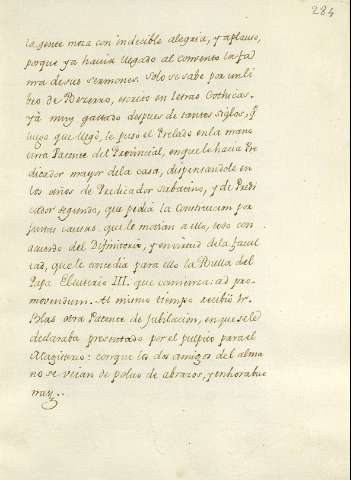 284
la gente moza con indecible alegria, y aplauso,
porque ya havia llegado al convento la fa
ma de sus sermones. Solo se sabe por un li
bro de Bezerro, escrito en letras Gothicas,
yà muy gastado despues de tantos siglos, q̃
luego que llegò, le puso el Prelado en la mano
una Patente del Provincial, en que le hacia Pre
dicador mayor de la casa, dispensandole en
los años de Predicador Sabatino, y de Predi
cador segundo, que pedia la Constitucion por
justas causas que le movian a ello, todo con
acuerdo del Difinitorio, y en virtud de la facul
tad, que le concedia para ello la Bulla del
Papa Eleuterio III. que comienza: ad pro-
movendum. Al mismo tiempo recibiò Fr.
Blas otra Patente de Jubilacion, en que se le
declaraba presentado por el pulpito para el
Magisterio: conque los dos amigos del alma
no se veian de polvo de abrazos, y enhorabue
nas..